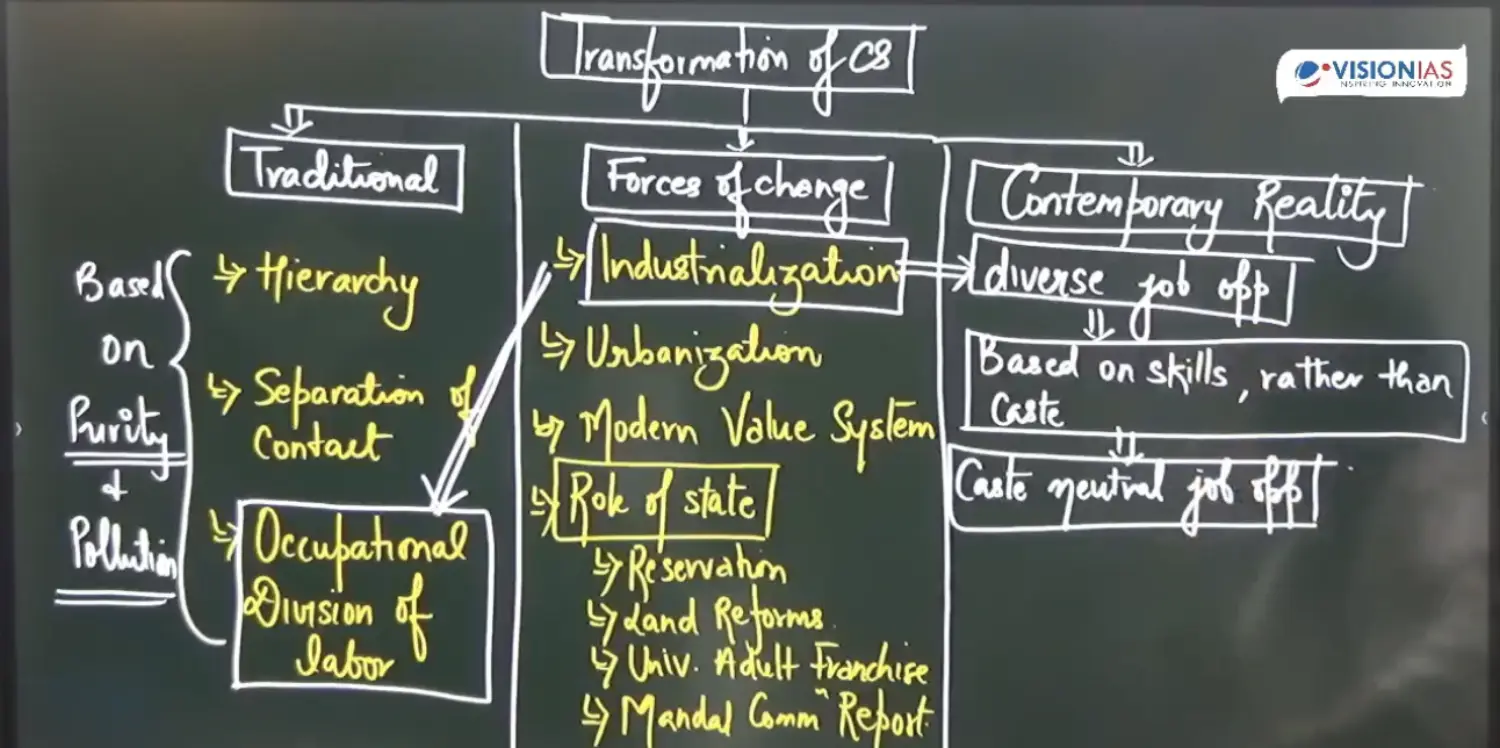 Transformation of CS
VISIONIAS
INSPIRING INNOVATION
Traditional
Based
on
Purity
&
Pollution
Hierarchy
Separation of
Contact
Occupational
Division of
labor
Forces of change
Industrialization
Urbanization
Modern Value System
Role of state
Reservation
Land Reforms.
Univ. Adult Franchise
Mandal Commⁿ Report.
Contemporary Reality
diverse job opp
Based on skills, rather than
Caste
Caste neutral job opp